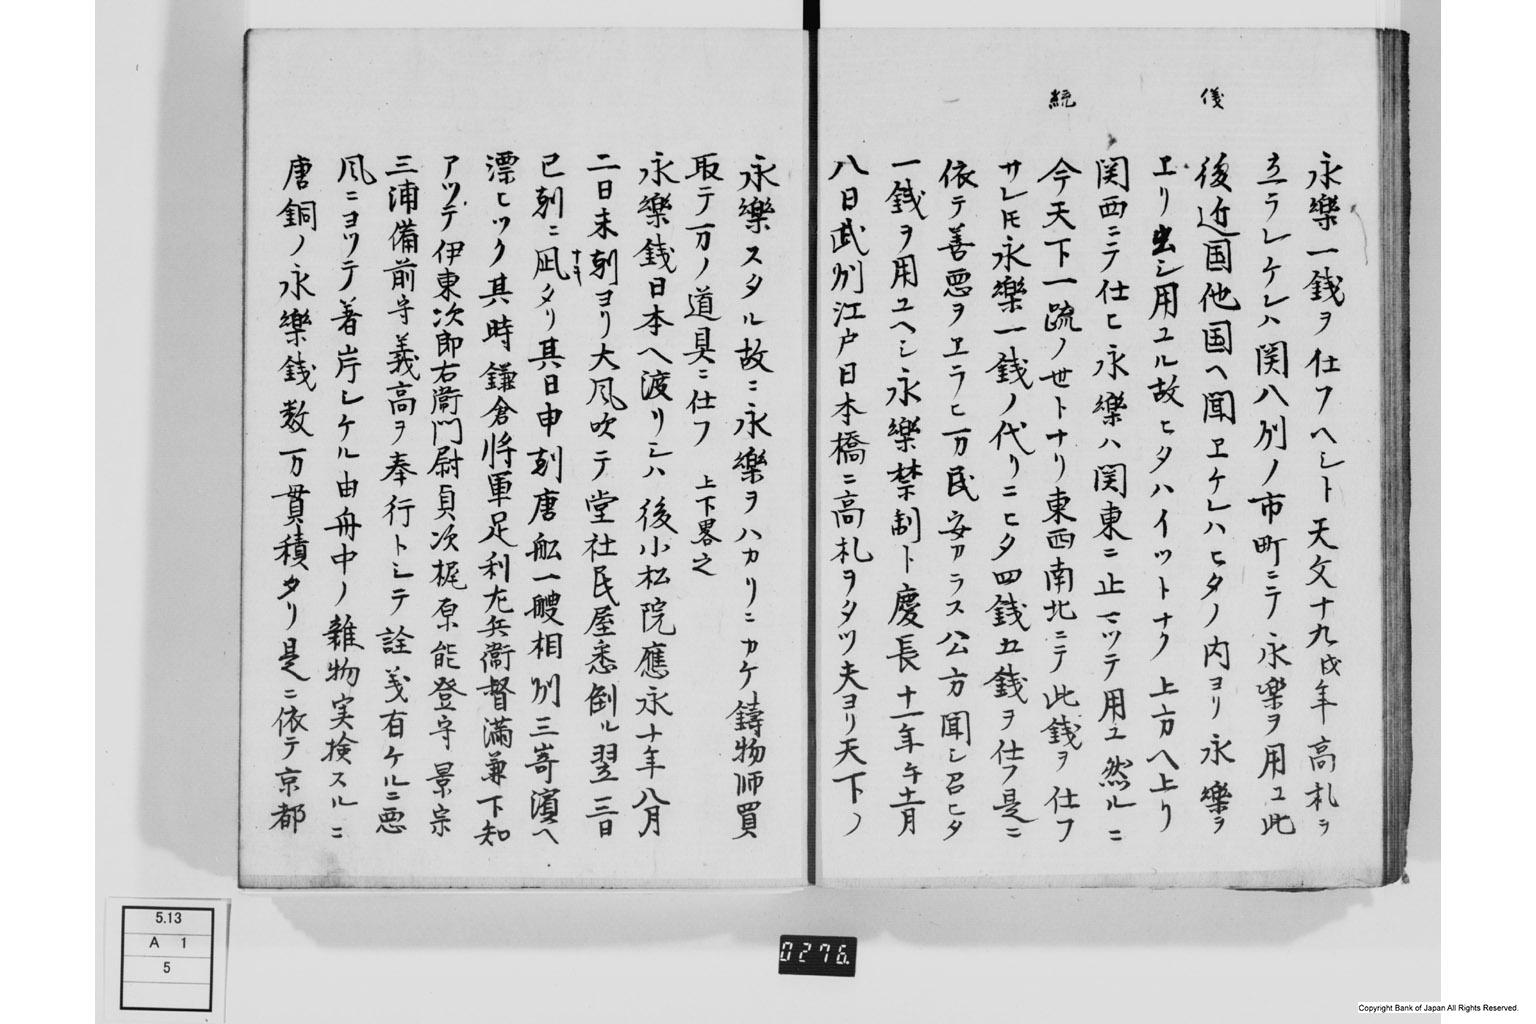 儀
統
永樂一銭ヲ仕フヘシト天文十九戌年高札ヲ
立ラレケレハ関八刕ノ市町ニテ永楽ヲ用ユ此
後近国他国ヘ聞ヱケレハヒタノ内ヨリ永樂ヲ
ヱリ出シ用ユル故ヒタハイツトナク上方ヘ上リ
関西ニテ仕ヒ永樂ハ関東ニ止マツテ用ユ然ルニ
今天下一疏ノ世トナリ東西南北ニテ此銭ヲ仕フ
サレ𪜈永樂一銭ノ代リニヒタ四銭五銭ヲ仕フ是ニ
依テ善悪ヲヱラヒ万民安カラス公方聞シ召ヒタ
一銭ヲ用ユヘシ永樂禁制ト慶長十一年午十二月
八日武刕江戸日本橋ニ高札ヲタツ夫ヨリ天下ノ
永樂スタル故ニ永樂ヲハカリニカケ鋳物師買
取テ万ノ道具ニ仕フ 上下畧之
永樂銭日本ヘ渡リシハ後小松院應永十年八月
二日未刻ヨリ大風吹テ堂社民屋悉倒ル翌三日
巳刻ニ凪タリ其日申刻唐舩一艘相刕三嵜濱ヘ
漂ヒツク其時鎌倉将軍足利左兵衞督満兼下知
アツテ伊東次郎右衞門尉貞次梶原能登守景宗
三浦備前守義高ヲ奉行トシテ詮義有ケルニ悪
風ニヨツテ着岸シケル由舟中ノ雑物実検スルニ
唐銅ノ永樂銭数万貫積タリ是ニ依テ京都
5.13
A 1
5
0276
Copyright Bank of Japan All Rights Reserved.